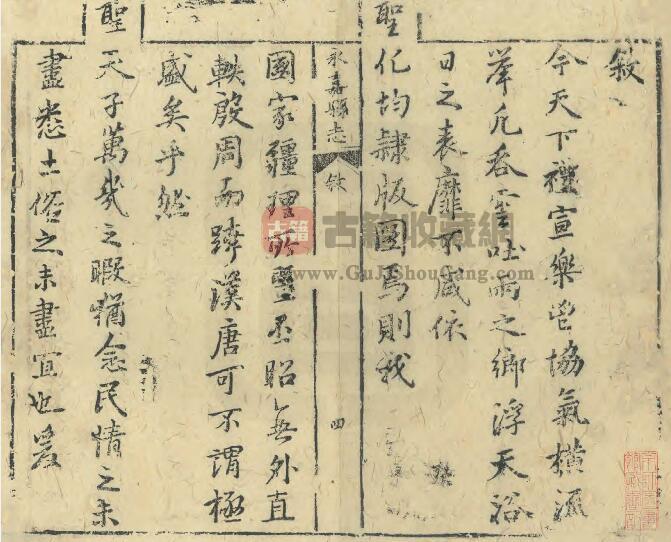 敘
今天下禮宣樂邕協氣橫流
舉凡吞雲吐雨之鄉浮天浴
日之表靡不咸依
聖化均隸版圖焉則我
永嘉縣志 敘 四
國家疆理所暨丕昭無外直
軼殷周而躋漢唐可不謂極
盛矣乎然
聖天子萬幾之暇猶念民情之未
盡悉土俗之未盡宜也爰
古籍
古籍收藏網
www.GuJiShouCang.com